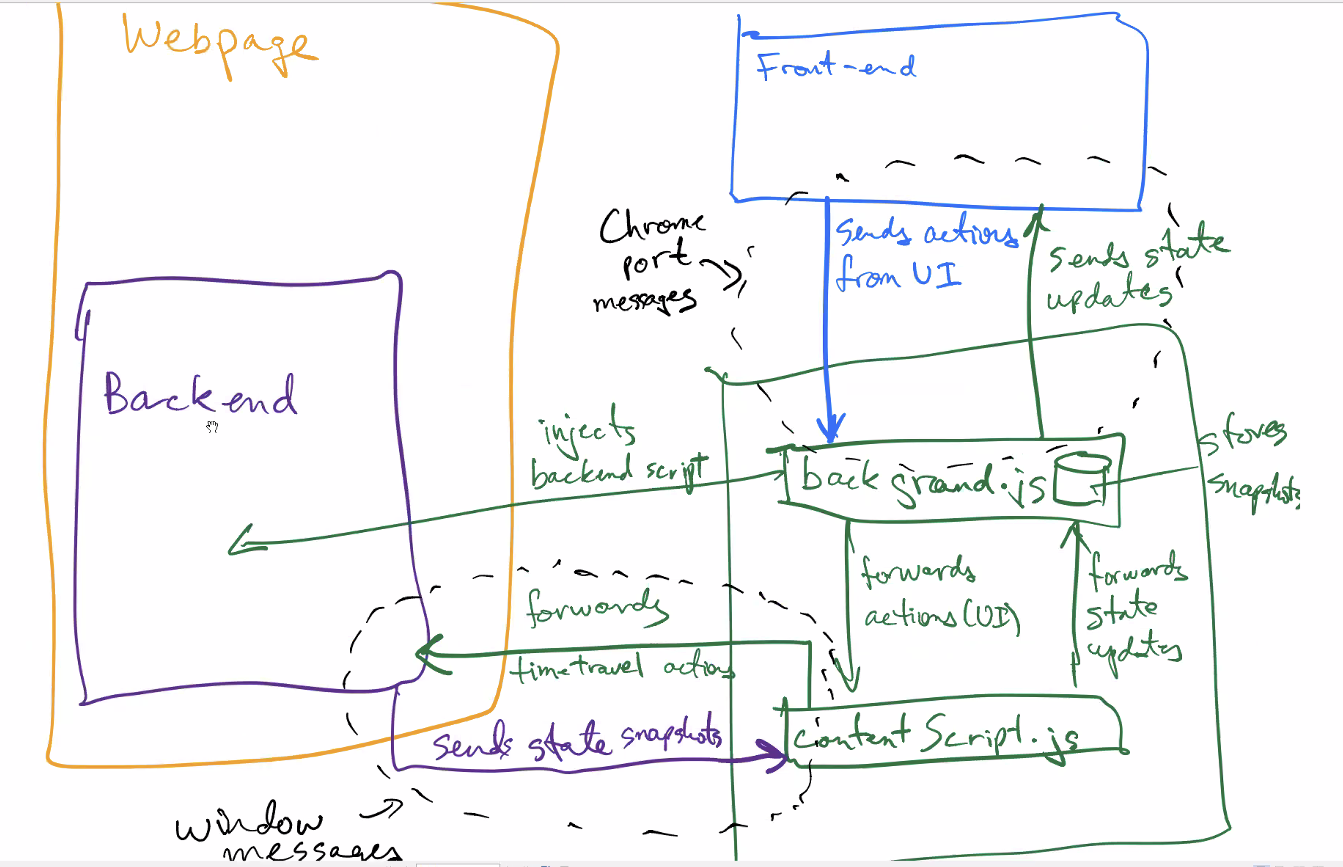 Webpage
Front-end
Chrome
port
messages
sends actions
from UI
sends state
updates
Backend
injects
backend script
background.js
stores
snapshots
forwards
actions (UI)
forwards
state
updates
forwards
timetravel actions
sends state snapshots
content Script.js
window
messages